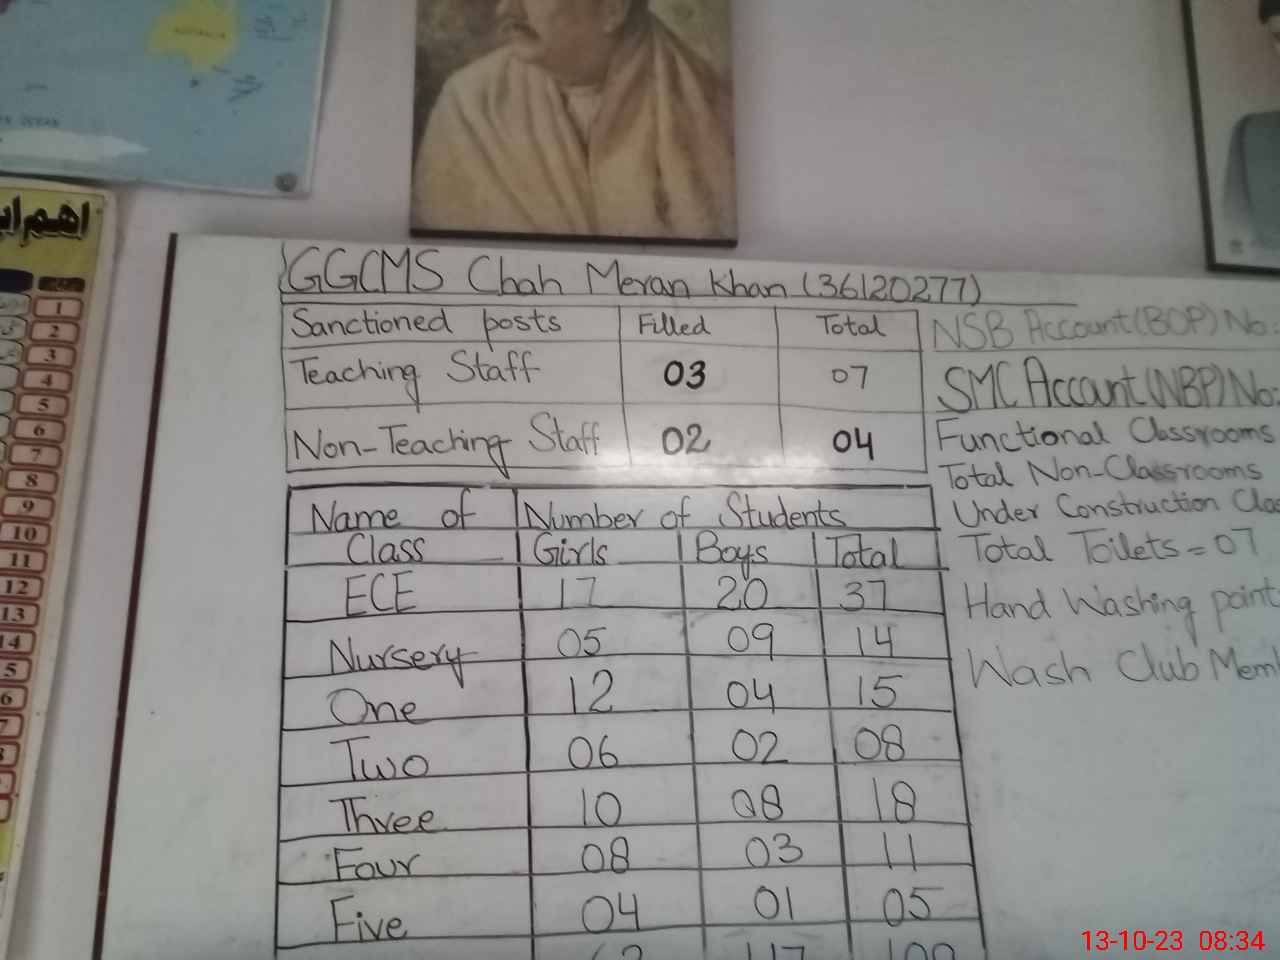 AUSTRALIA
GGCMS Chah Meran Khan (36120277)
Sanctioned posts Filled Total
Teaching Staff 03 07
Non-Teaching Staff 02 04
NSB Account (BOP) No:
SMC Account (NBP) No:
Functional Classrooms
Total Non-Classrooms
Under Construction Clas
Total Toilets = 07
Hand Washing point
Wash Club Mem
Name of Class Number of Students
Girls Boys Total
ECE 17 20 37
Nursery 05 09 14
One 12 04 15
Two 06 02 08
Three 10 08 18
Four 08 03 11
Five 04 01 05
اہم
1
2
3
4
5
6
7
8
9
10
11
12
13
14
13-10-23 08:34